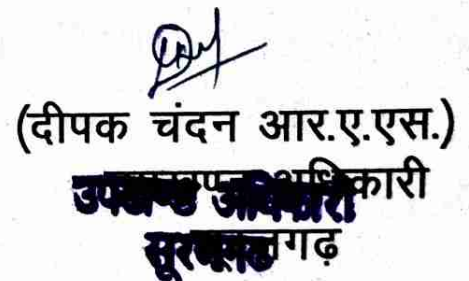 (दीपक चंदन आर.ए.एस.)
उपखण्ड अधिकारी
सूरतगढ़